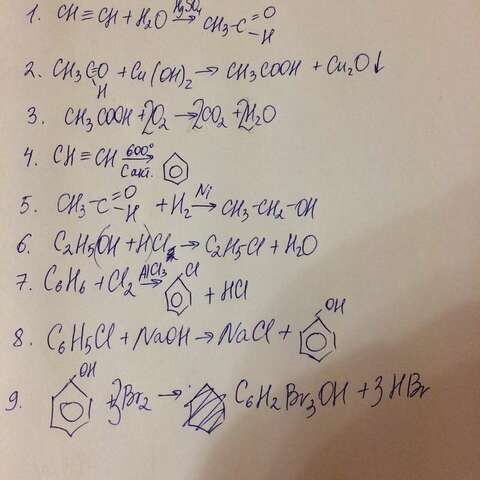 1. CH≡CH + H2O HgSO4→ CH3-C=O H
2. CH3C=O H + Cu(OH)2 → CH3COOH + Cu2O↓
3. CH3COOH + 2O2 → 2CO2 + 2H2O
4. CH≡CH 600° C акт. →
5. CH3-C=O H + H2 Ni→ CH3-CH2-OH
6. C2H5OH + HCl → C2H5Cl + H2O
7. C6H6 + Cl2 AlCl3→ Cl + HCl
8. C6H5Cl + NaOH → NaCl + OH
9. OH + 3Br2 → C6H2Br3OH + 3HBr